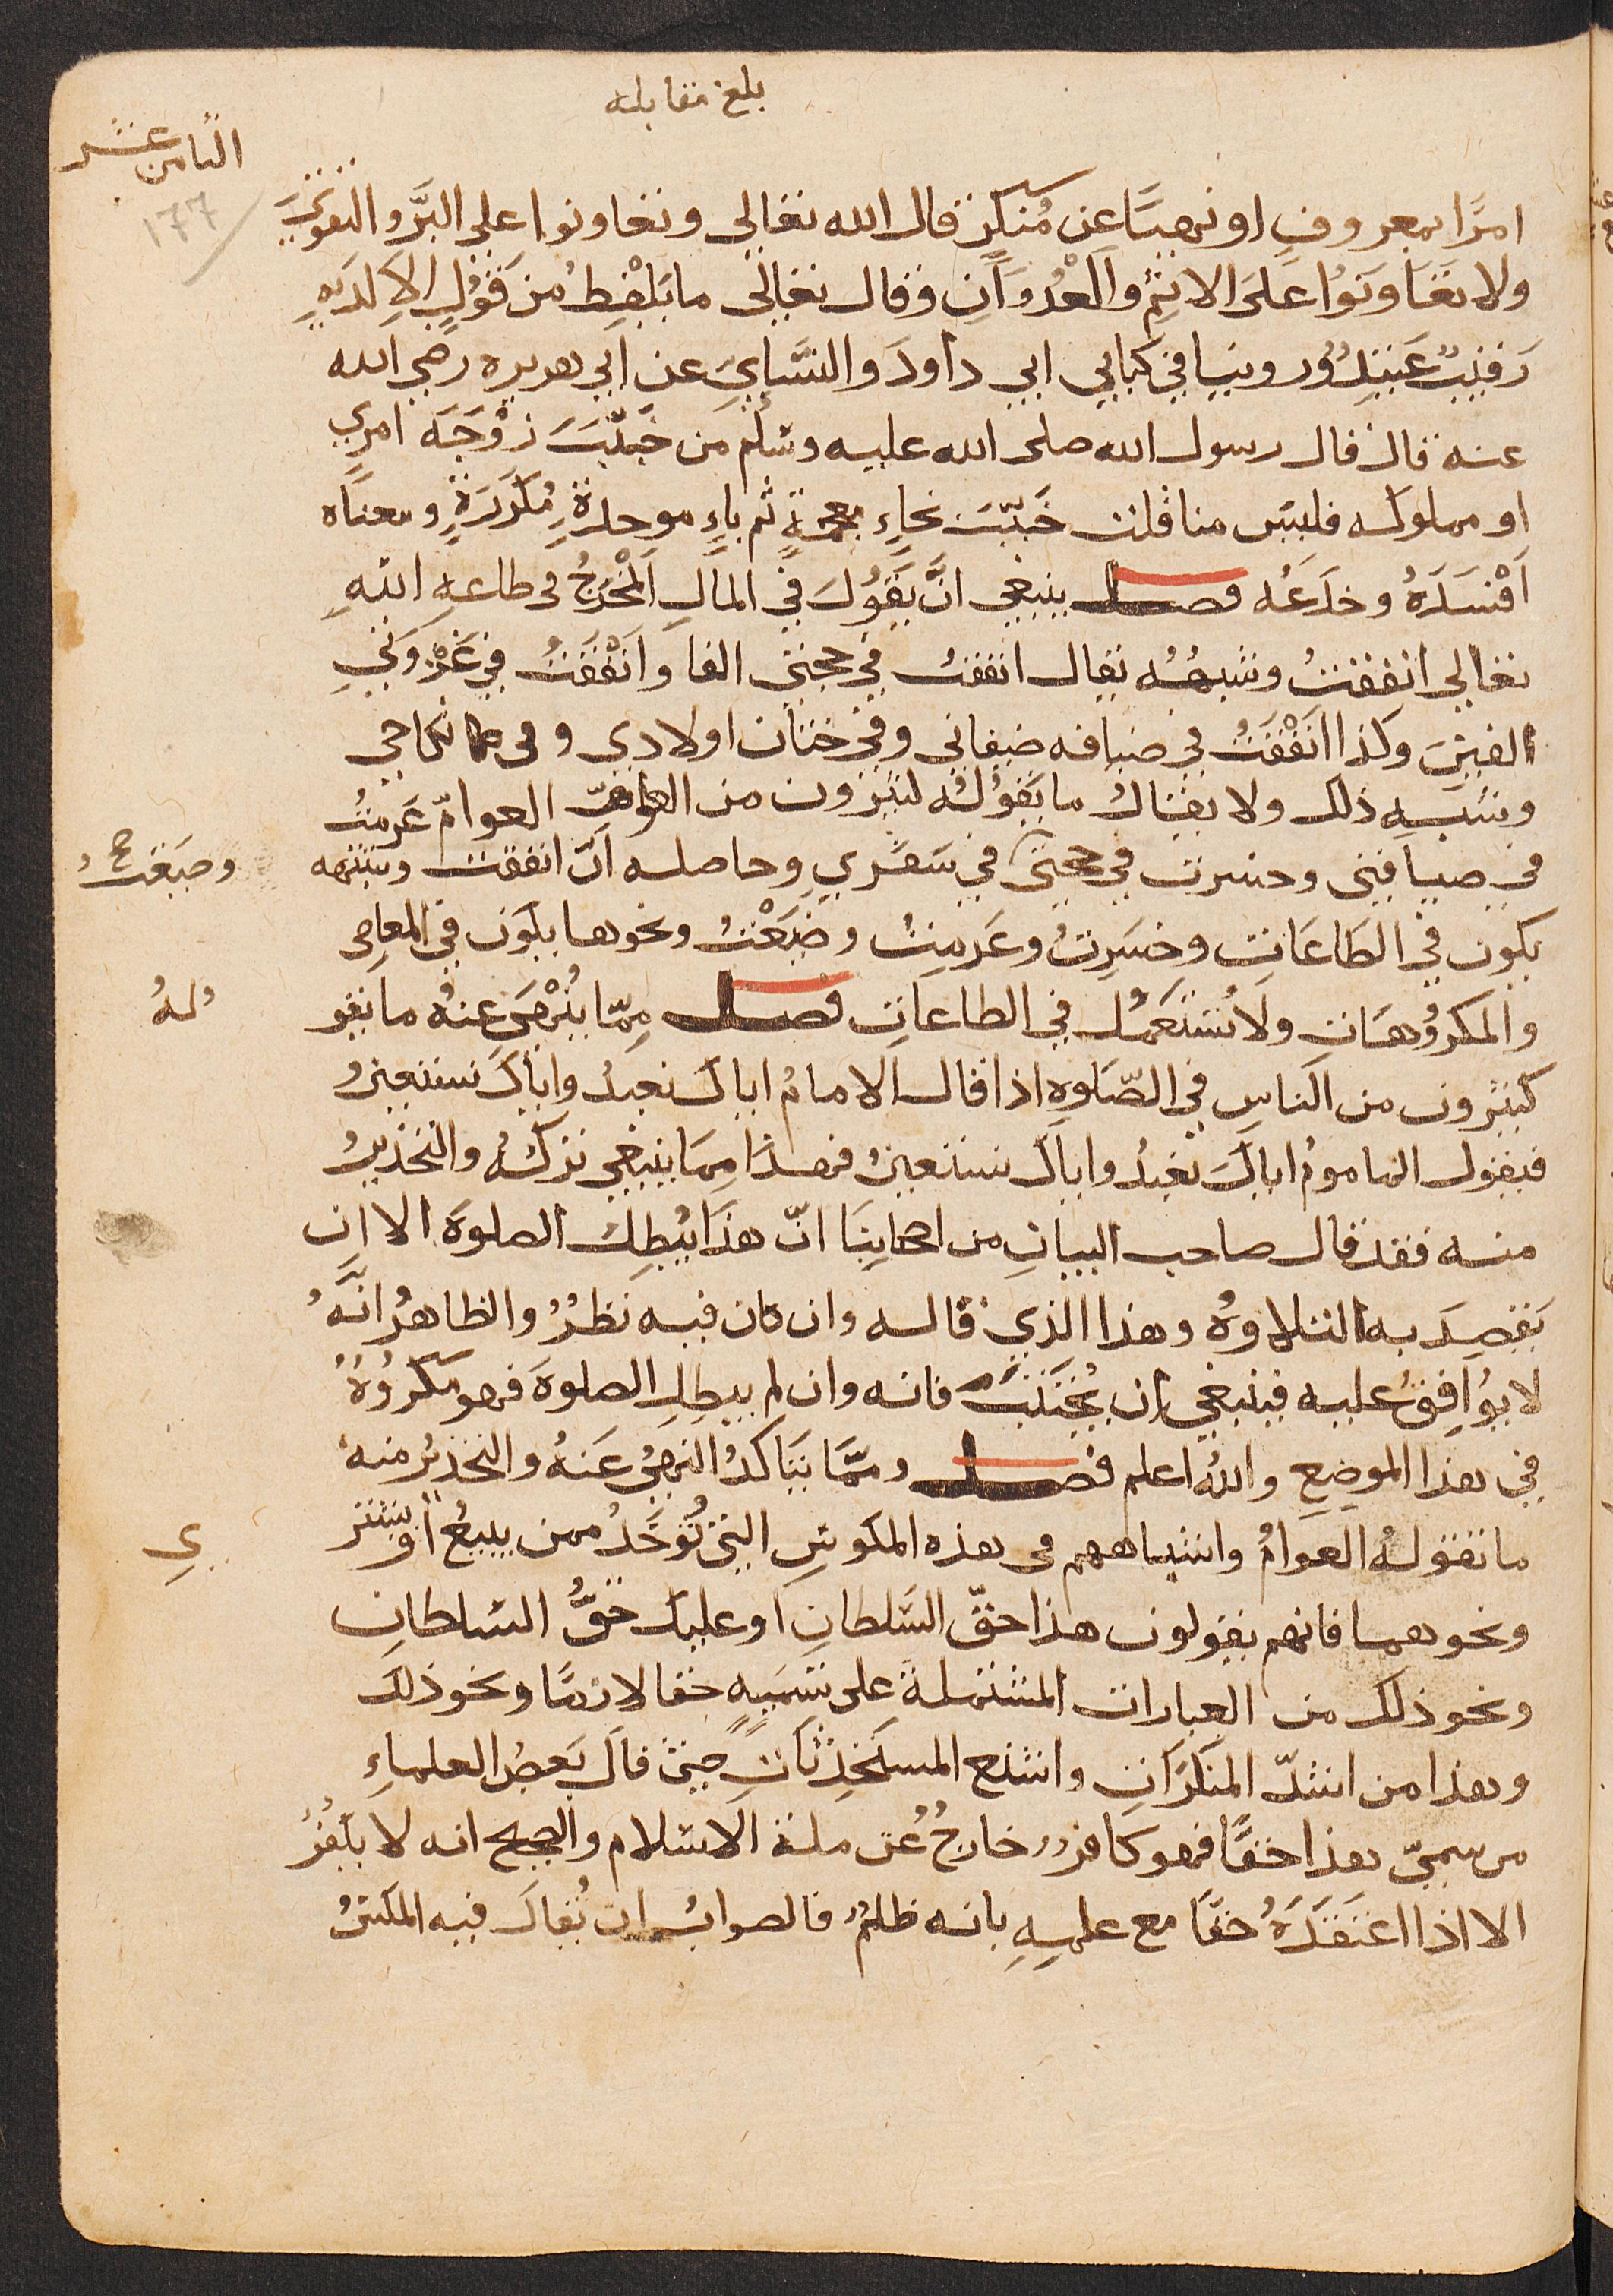 بلغ مقابله
الثامن عشر
١٧٧
امرًا بمعروفٍ او نهيًا عن مُنكرٍ قال الله تعالى وتعاونوا على البرّ والتقوى
ولا تعَاونوُا عَلىَ الاثم والعُدْوَانِ وقال تعالى ما يَلْفِظُ من قَوْلٍ الاّ لدَيْهِ
رَقيبٌ عَتيدٌ وروينا في كتابي ابي داودَ والنسَّاي عن ابي هريره رضي الله
عنه قال قال رسول الله صلى الله عليه وسلم من خَبّبَ زوْجَةَ امرئ
او مملوكه فليس منا قلت خَبّبَ بخاءٍ معجمةٍ ثم باءٍ موحدةٍ مُكرّرةٍ ومعناه
اَفْسَدَهُ وخدَعَه فصل ينبغي انْ يَقُولَ في المالِ المُخْرَجُ في طاعهِ اللهِ
تعالى انفقتُ وشبهُه يقال انفقتُ في حجتي الفا وَاَنْفَقتُ في غَزْوَتي
الفينَ وكذا اَنفقتُ في ضيافه ضيفاني وفي ختان اولادي وفي نكاحي
وشبهِ ذلك ولا يقالُ ما يَقوُلُه كثيرون من العوامّ غَرِمتُ
في ضيافتي وخسرت في حجتي في سَفَري وحاصله انّ انفقت وشبهه
وضيعت صح
يكون في الطَاعَاتِ وخسَرِتُ وغَرِمتُ وضيَعْتُ ونحوها يكون في المعاصي
والمكروُهَاتِ ولا تُستعَملُ في الطاعاتِ فصل مِمّا يُنْهىَ عنهُ ما يقو
لهُ
كثيرون من الناسِ في الصّلوهِ اذا قال الامامُ اياك نعبدُ واياكَ نستعينُ
فيقول المامومُ اياكَ نعبدُ واياكَ نستعينُ فهذَا مِمَا ينبغي تركُهُ والتحذيرُ
منه فقد قال صاحب البيانِ من اصحابِنَا انّ هذَا يُبطِلُ الصلوةَ الا ان
يَقصِدَ به التلاوهُ وهذا الذي قاله وان كان فيه نظرٌ والظاهرُ انَّهُ
لا يوُافِقُ عليه فينبغي ان يُجْتنَبَ فانه وان لم يبطِلِ الصلوةَ فهو مكروُهٌ
في هذا الموضِعِ واللهُ اعلم فصل ومّما يتَاكدُ النهيُ عَنهُ والتحذيرُ منه
ما تقولهُ العوامُ واشباههم في هذه المكوسِ التي تُوخَذُ ممن يبيعُ اَوْ يشتر
ي
ونحوهما فانهم يقولون هذا حقّ السَلطانِ او عليك حَقُّ السلطانِ
ونحو ذلك من العبارات المشتملةَ على تسمَيهِ حقا لازمًا ونحو ذلكَ
وهذا من اشدّ المنكَرَاتِ واشنع المستَحدِثَاتِ حتى قالَ بَعضُ العلماءِ
من سمىّ هذا حقًّا فهو كافرٌ خارجٌ عُن ملةِ الاسلام والصحيح انه لا يكفُرُ
الا اذا اعتقدَهُ حقًا مع علمِهِ بانه ظلمٌ فالصوابُ ان يُقالَ فيه المَكسُ